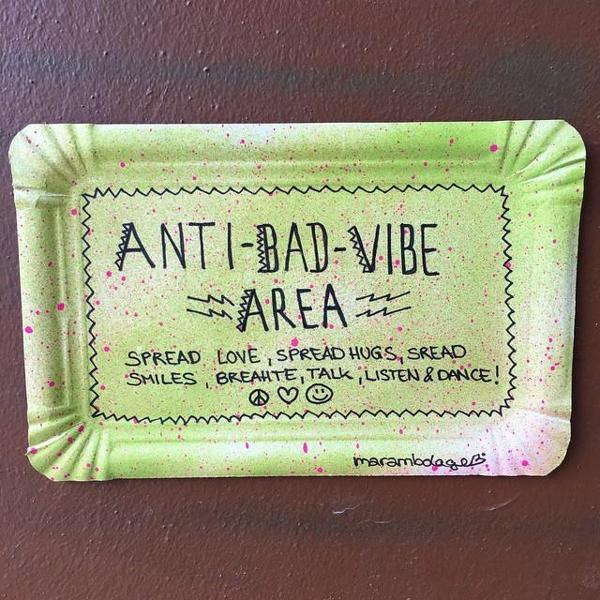 ANTI-BAD-VIBE
AREA
SPREAD LOVE, SPREAD HUGS, SREAD
SMILES, BREAHTE, TALK, LISTEN & DANCE!
marambolage